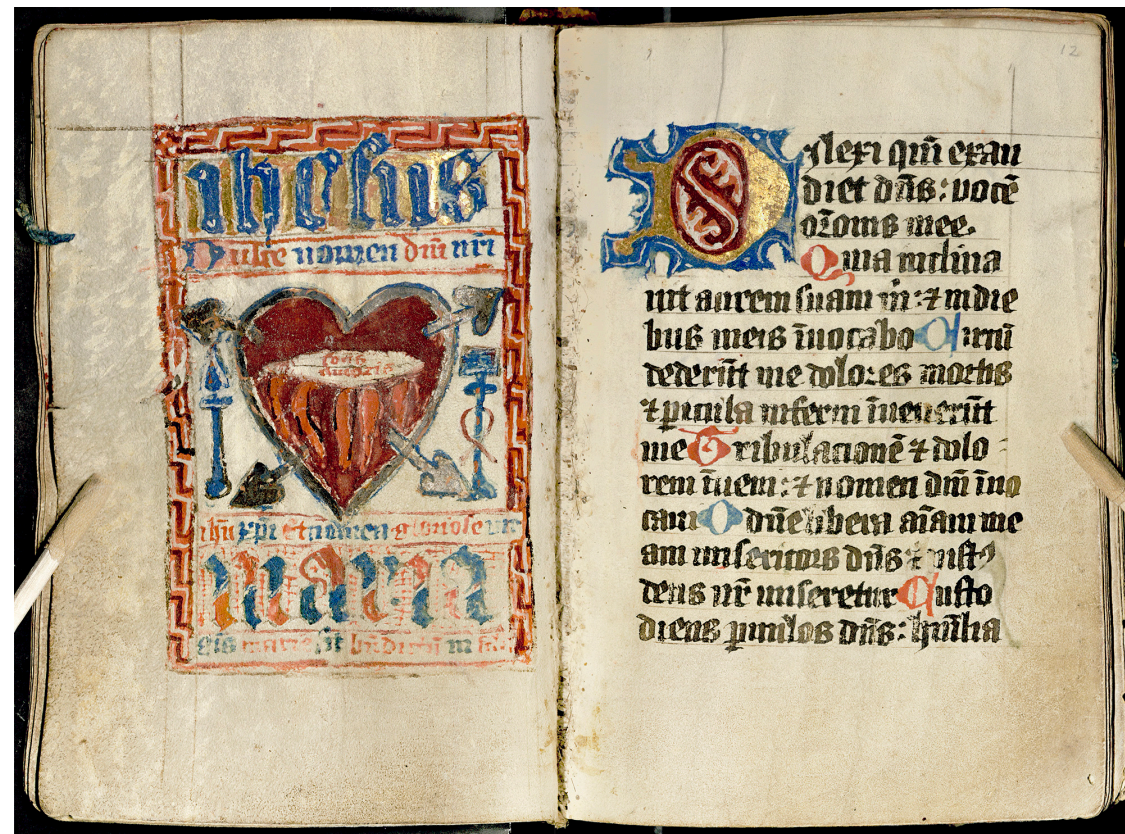 ihesus
Dulce nomen dñi nři
cor
ihu xpi Et nomen gloriose
maria
eius matris sit bñdictũ in
12
Dilexi qm̃ exau
diet dñs: vocẽ
orõnis mee.
Quia inclina
uit aurem suam m̃: ⁊ in die
bus meis ĩuocabo Cir̃cũ
dederũt me dolores mortis
⁊ picula inferni ĩuenerũt
me Tribulacionẽ ⁊ dolo
rem ĩueni: ⁊ nomen dñi ĩuo
caui O dñe libera aĩam me
am misericors dñs ⁊ iust9
deus nr̃ miseretur Custo
diens puulos dñs: humilia